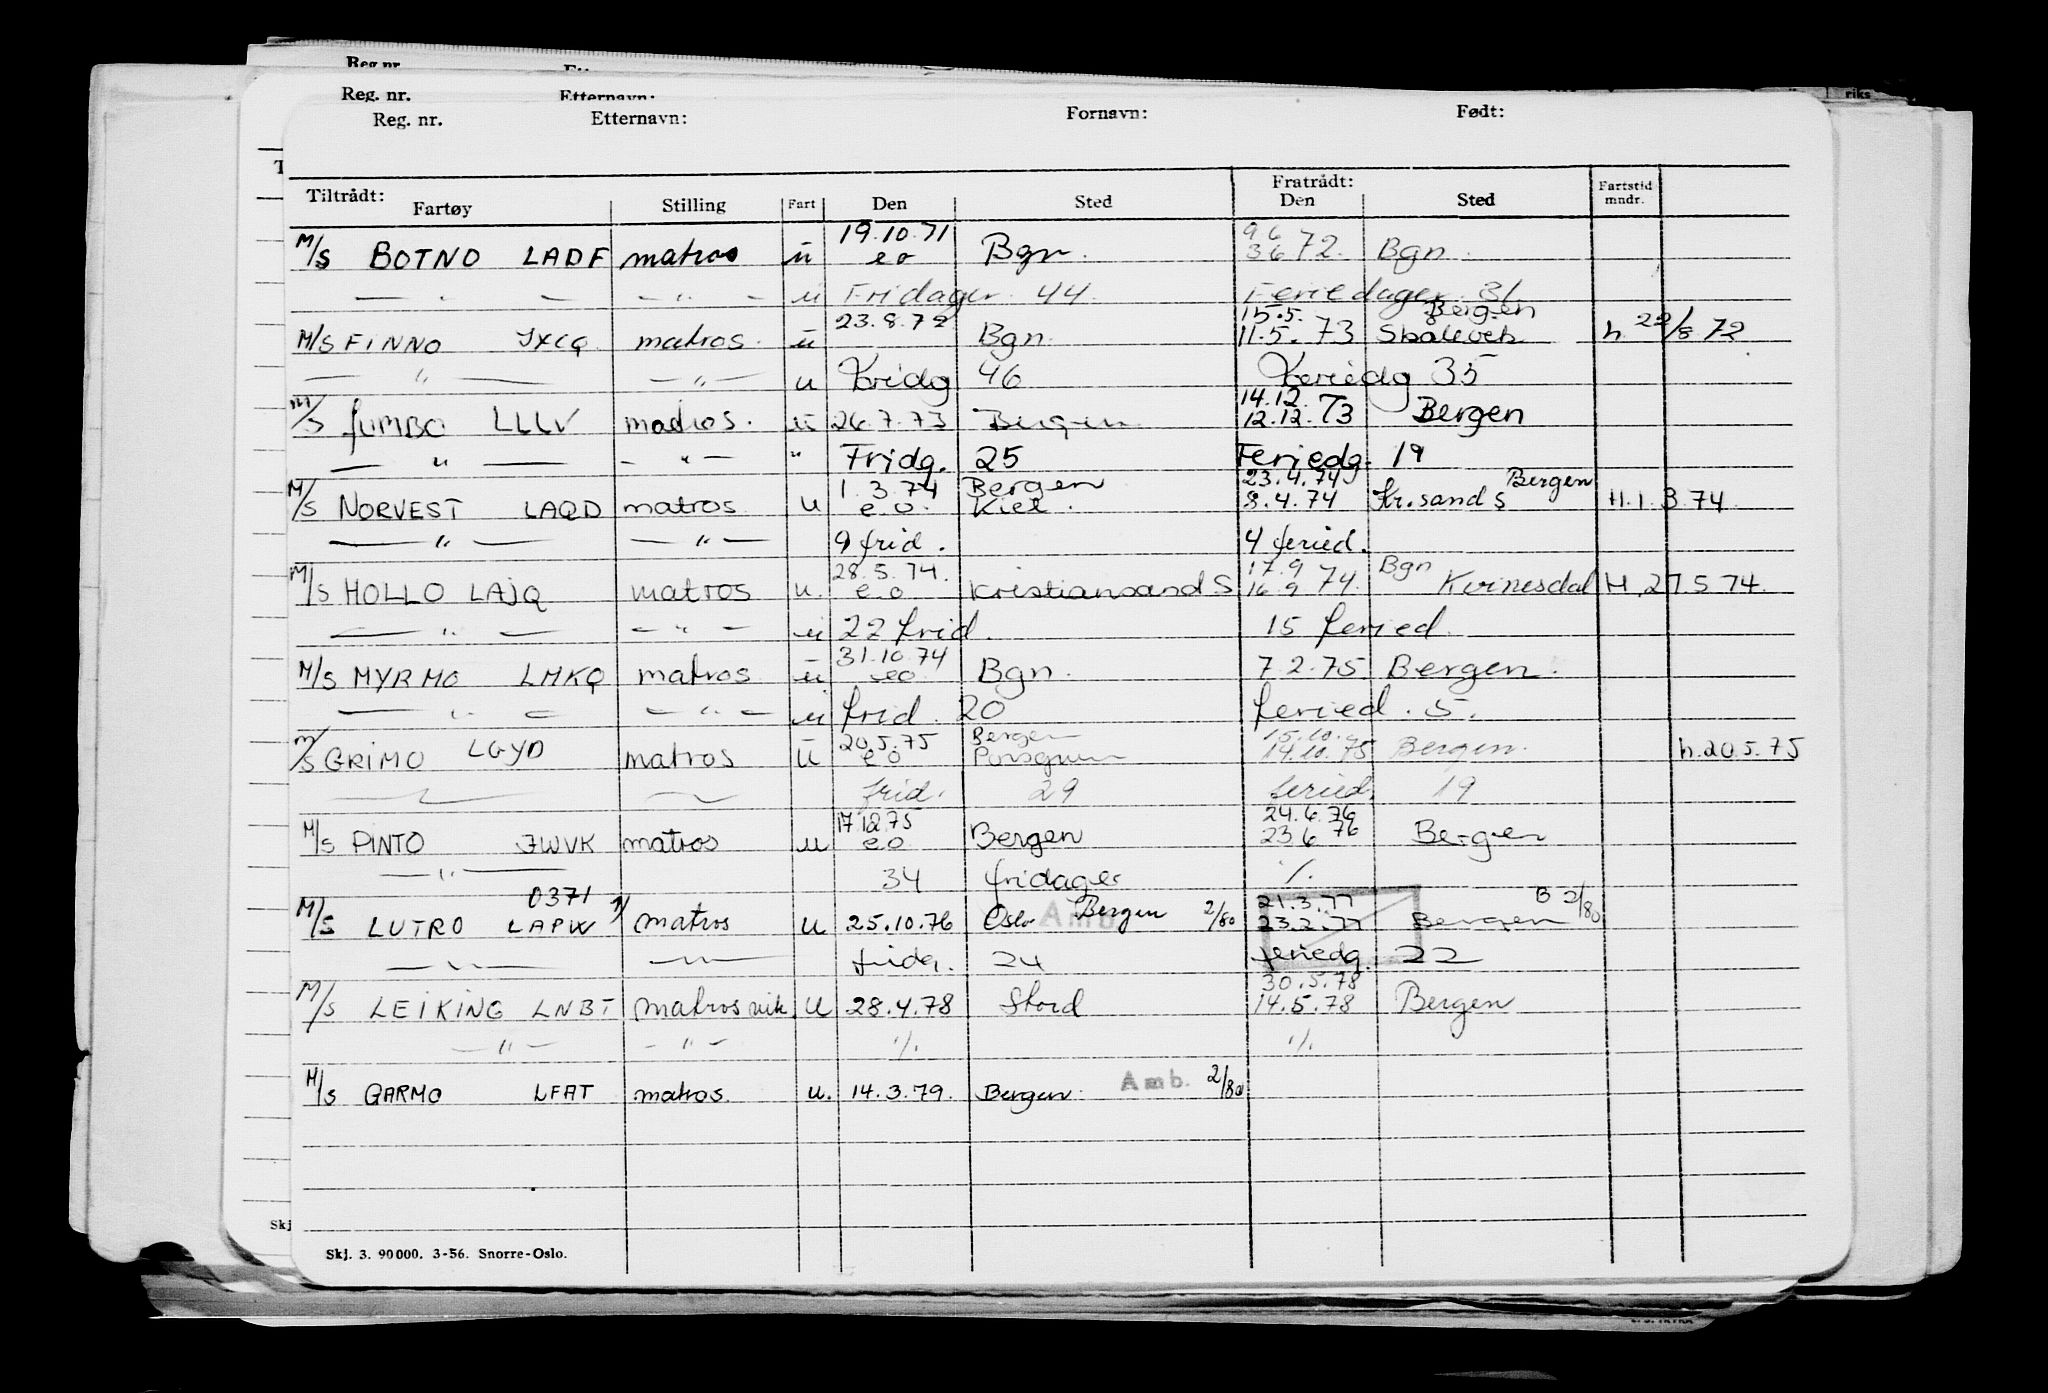 Reg. nr. Etternavn:
Reg. nr. Etternavn: Fornavn: Født:
Tiltrådt: Fratrådt:
Fartøy Stilling Fart Den Sted Den Sted Fartstid mndr.
19.10.71 9 6
M/S BOTNO LADF matros u eo Bgn. 3 6 72. Bgn.
— " — — " — u Fridager 44. Feriedager 31.
23.8.72 15.5. Bergen
M/S FINNO JXCQ matros. u Bgn. 11.5.73 h. 22/8 72
— " — — " — u Fridg 46 Feriedg 35
14.12.
M/S JUMBO LLLV matros. u 26.7.73 Bergen 12.12.73 Bergen
— " — — " — " Fridg. 25 Feriedg. 19
1.3.74 Bergen 23.4.74 Bergen
M/S NORVEST LAQD matros u e.o. Kiel. 8.4.74 Kr.sand S H.1.3.74
— " — — " — 9 frid. 4 feried.
28.5.74. 17.9 Bgn
M/S HOLLO LAJQ matros u. e.o Kristiansand S 16.9 74. H.27.5 74.
— " — — " — u 22 frid. 15 feried.
31.10.74
M/S MYRMO LMKQ matros u eo Bgn. 7.2.75 Bergen.
— " — — " — u frid. 20 feried. 5.
20.5.75 Bergen 15.10.
M/S GRIMO LGYD matros u eo Porsgrunn 14.10.75 Bergen. h.20.5.75
frid. 29 feried. 19
17 12 75 24.6.76
M/S PINTO JWVK matros u eo Bergen 23 6 76 Bergen
— " — 34 fridager ./.
0371 21.3.77 B 2/80
M/S LUTRO LAPW 1) matros u 25.10.76 Oslo Amb. Bergen 2/80 23.2.77 Bergen
— " — — " — fridg. 24 feriedg. 22
30.5.78
M/S LEIKING LNBT matros vik. u 28.4.78 Stord 14.5.78 Bergen
— " — — " — ./. ./.
M/S GARMO LFAT matros. u. 14.3.79. Bergen. Amb. 2/80
Skj. 3. 90000. 3-56. Snorre-Oslo.